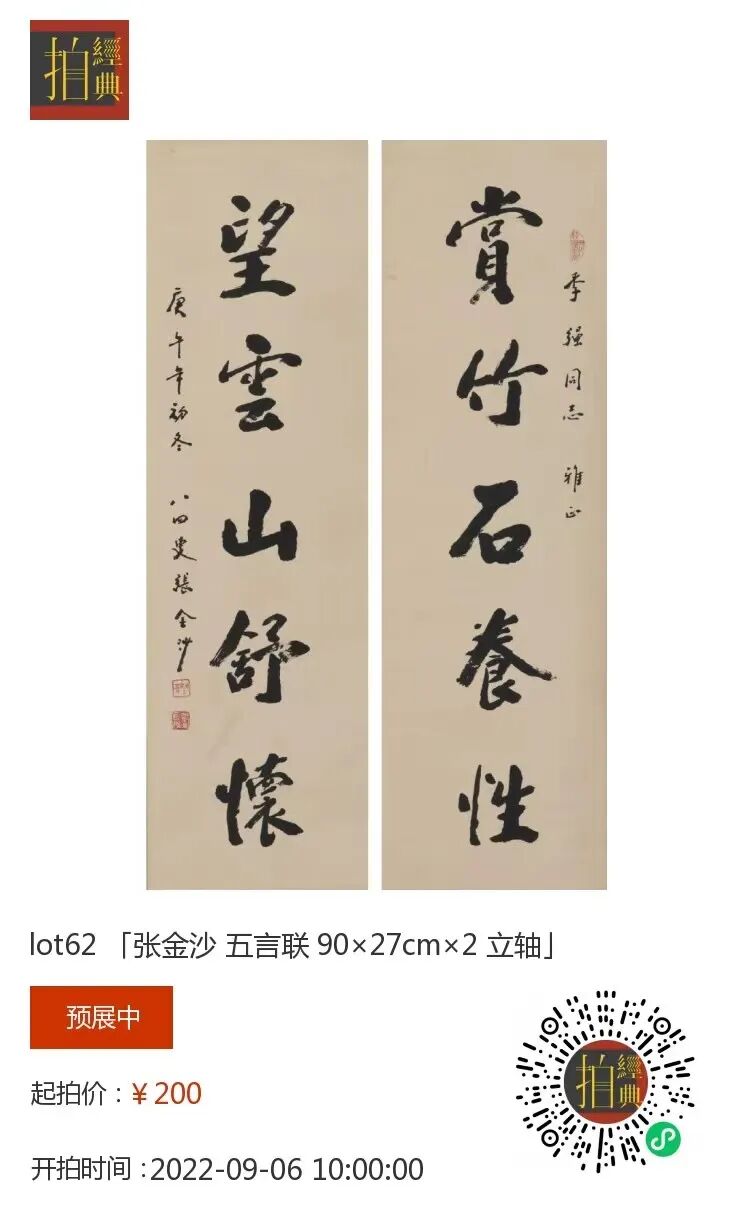 拍經典
賞竹石養性
季強同志 雅正
望雲山舒懷
庚午年初冬 八四叟張金沙
lot62 「张金沙 五言联 90×27cm×2 立轴」
预展中
起拍价：¥200
开拍时间：2022-09-06 10:00:00
拍經典